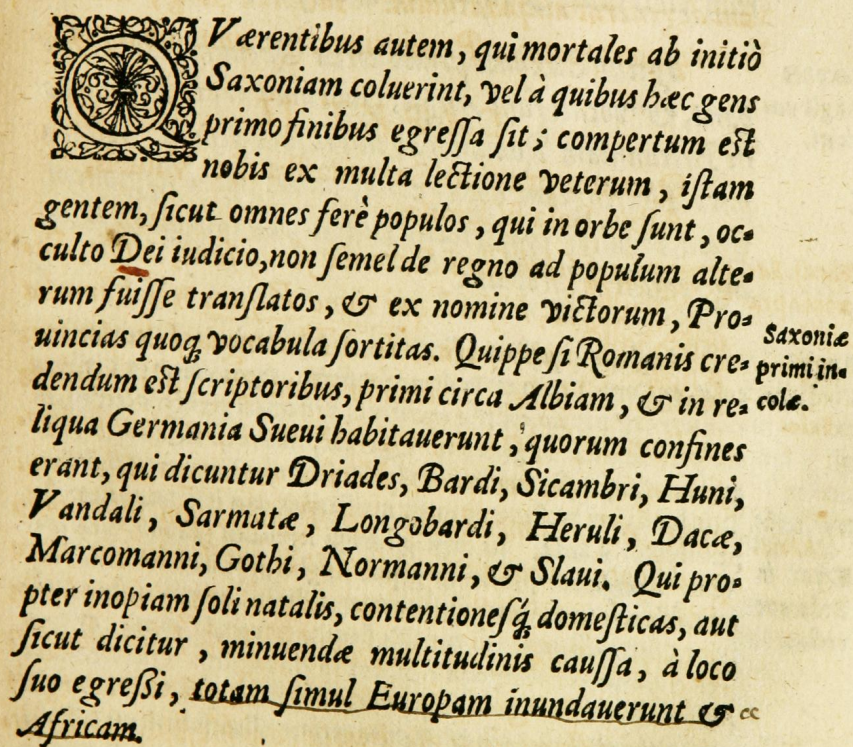 QVærentibus autem, qui mortales ab initiò
Saxoniam coluerint, vel à quibus hæc gens
primo finibus egreſſa ſit; compertum eſt
nobis ex multa lectione veterum, iſtam
gentem, ſicut omnes ferè populos, qui in orbe ſunt, oc-
culto Dei iudicio, non ſemel de regno ad populum alte-
rum fuiſſe tranſlatos, & ex nomine victorum, Pro-
uincias quoq; vocabula ſortitas. Quippe ſi Romanis cre-
dendum eſt ſcriptoribus, primi circa Albiam, & in re-
liqua Germania Sueui habitauerunt, quorum confines
erant, qui dicuntur Driades, Bardi, Sicambri, Huni,
Vandali, Sarmatæ, Longobardi, Heruli, Dacæ,
Marcomanni, Gothi, Normanni, & Slaui. Qui pro-
pter inopiam ſoli natalis, contentioneſq́; domeſticas, aut
ſicut dicitur, minuendæ multitudinis cauſſa, à loco
ſuo egreßi, totam ſimul Europam inundauerunt &
Africam.
Saxoniæ
primi in-
colæ.